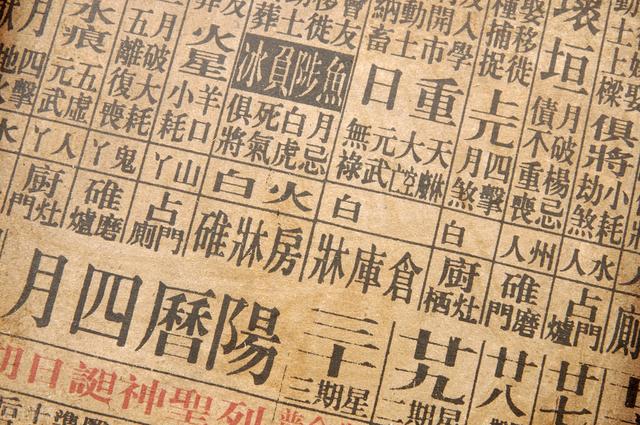 俱將
小耗
劫煞
水人
占門爐
廿七
壞垣
月破
楊忌
債不
重喪
州人
碓磨門
廿八
娶移徙
種捕捉
上元
四擊
月煞
白
廚灶栖
廿九
星期二
人學
開市
動土
納畜
重日
大空
元武
無祿
白
倉庫牀
三十
星期三
友
移徙
魚陟負冰
月忌
白虎
死氣
俱將
火白
房牀碓
火星
羊口
小耗
山丫
占門廁
月破大耗
五離復喪
鬼丫
碓磨爐
水痕
五虛
元武
人丫
廚灶門
月
四擊
水
陽曆四月
列聖神誕日